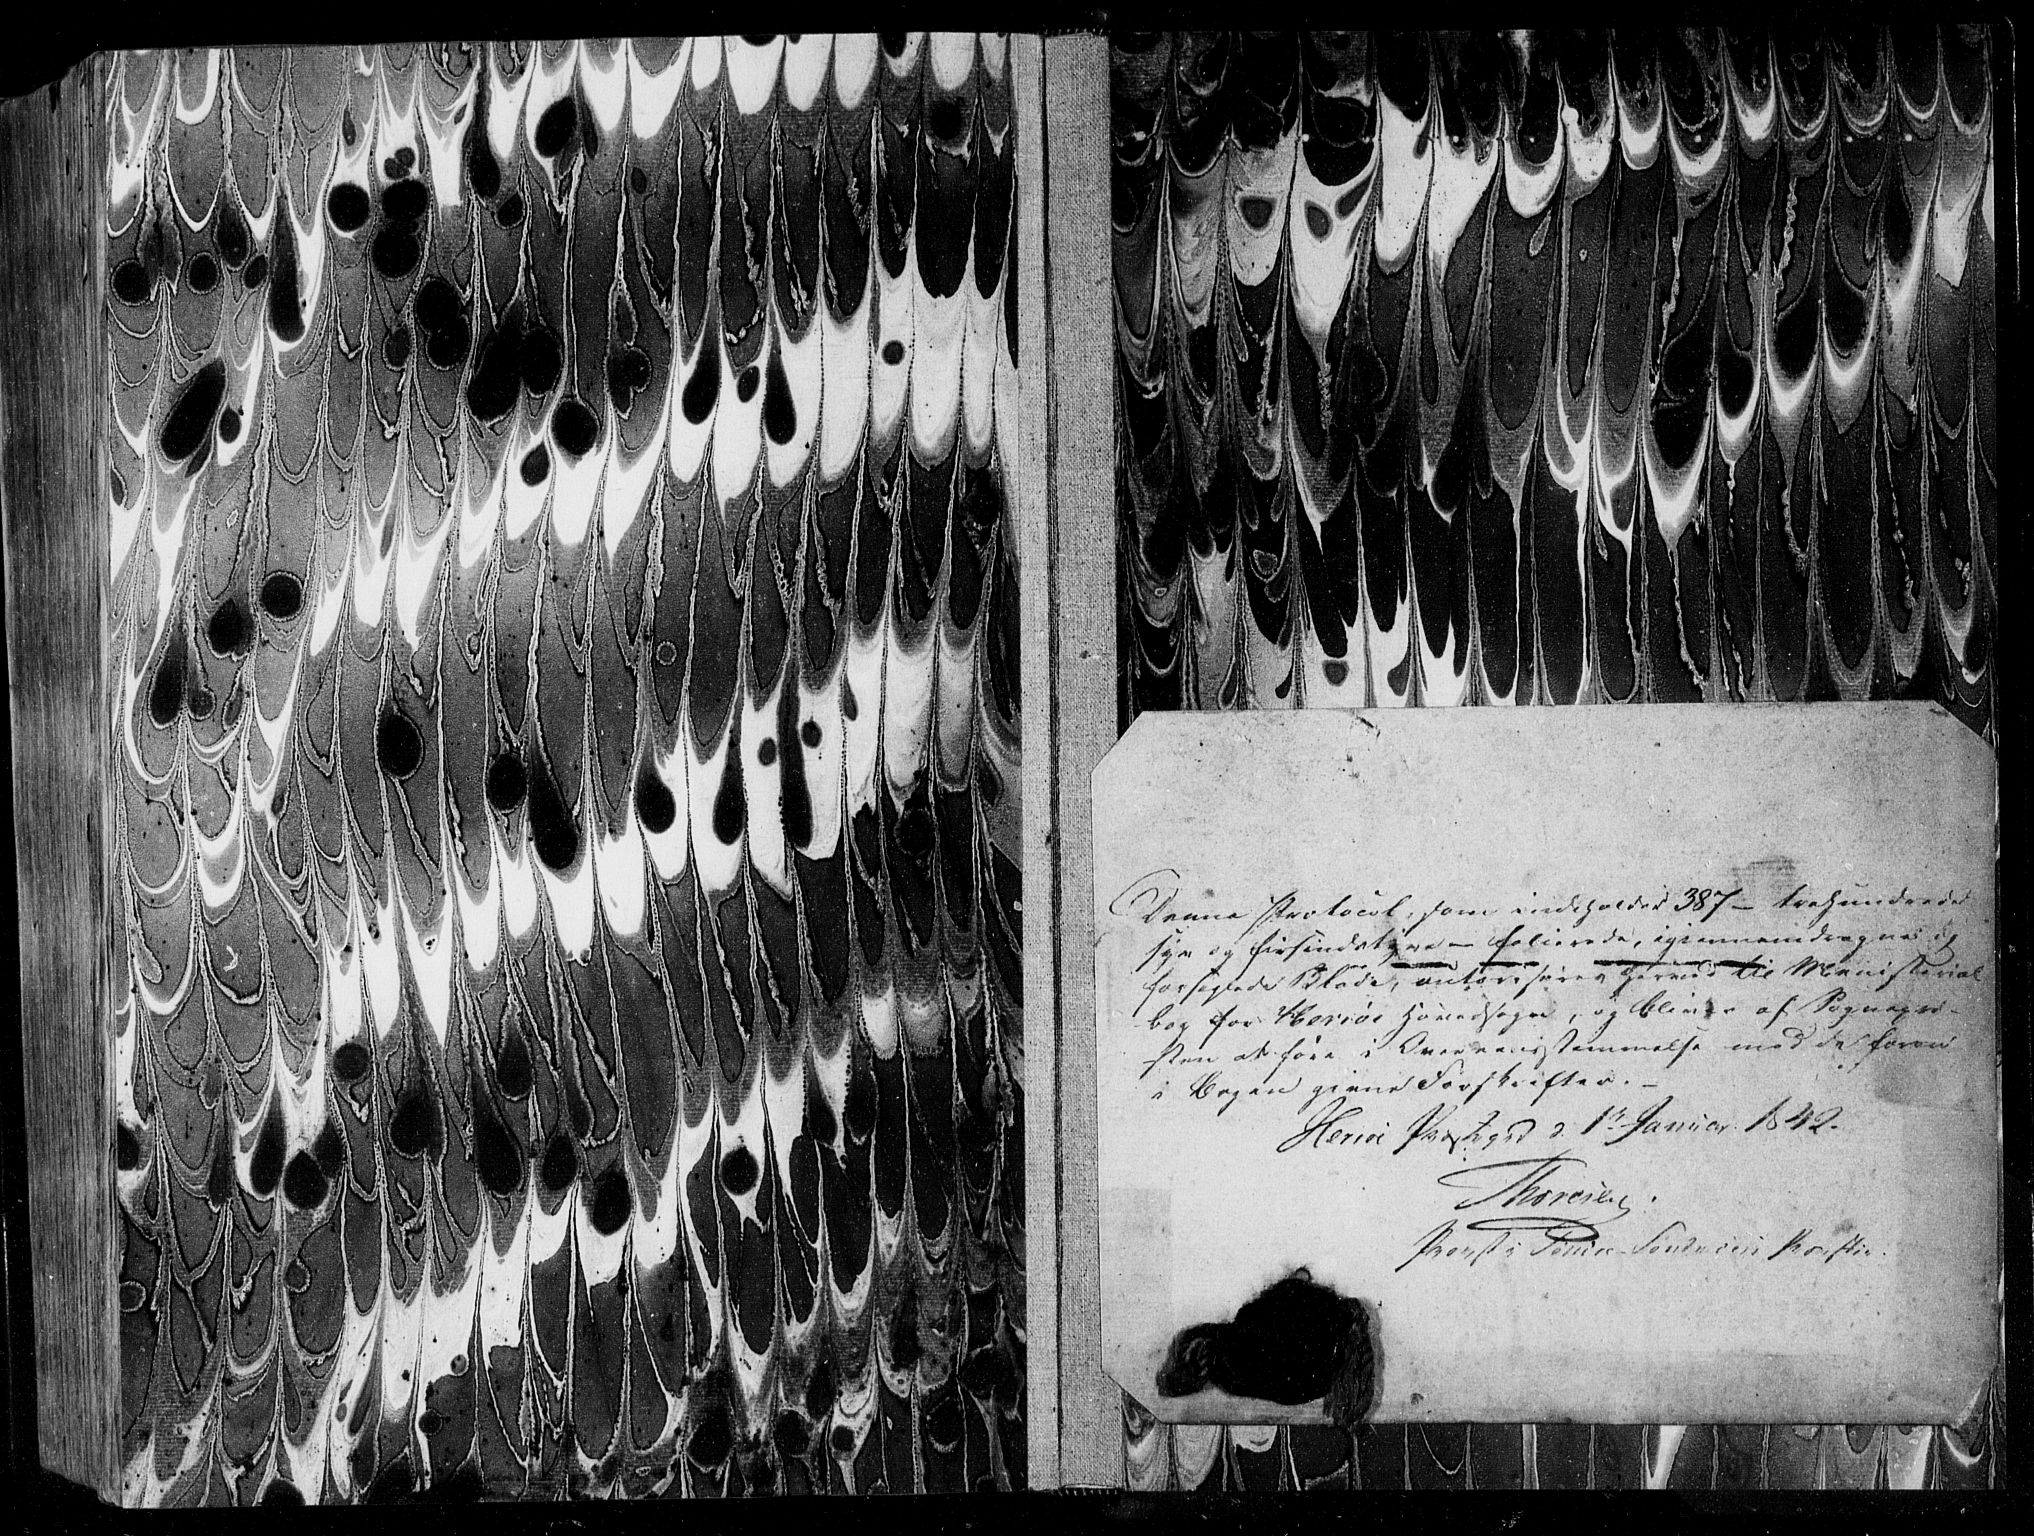 Denne Protocol, som indeholder 387 – trehundrede
syv og firsindstyve – folierede, igjennemdragne og
forseglede Blade, autoriseres herved til Ministerial
bog for Heröe Hovedsogn, og bliver af Sognepræ-
sten at före i Overeensstemmelse med de foran
i Bogen givne Forskrifter. –
Heröe Præstegrd d. 1ste Januar 1842.
Thoresen.
Provst i Söndre Söndmörs Provstie.